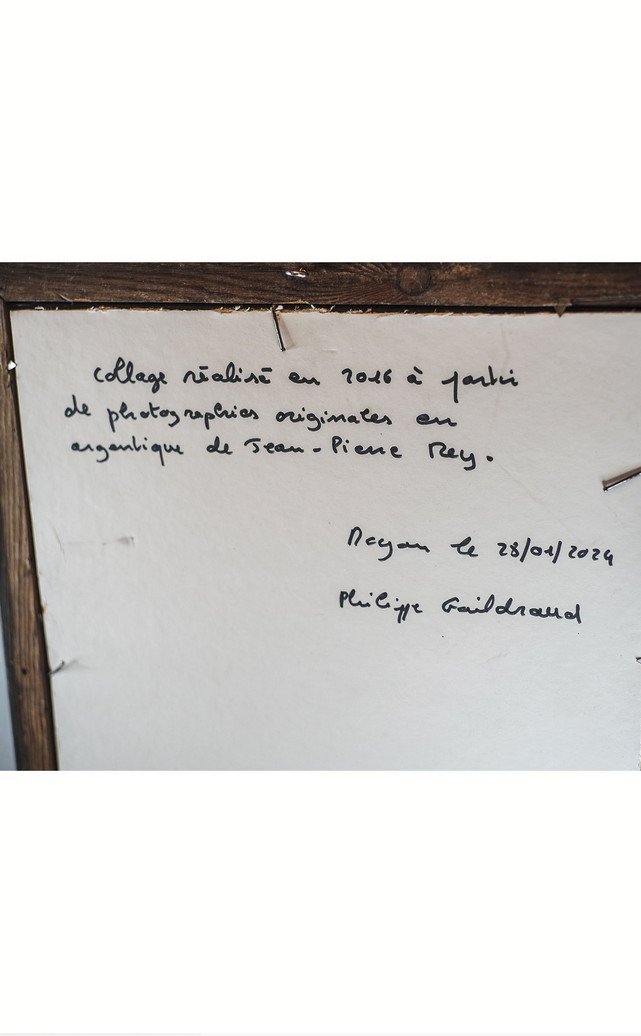 Collage réalisé en 2016 à partir
de photographies originales en
argentique de Jean-Pierre Rey.
Royan le 28/01/2024
Philippe